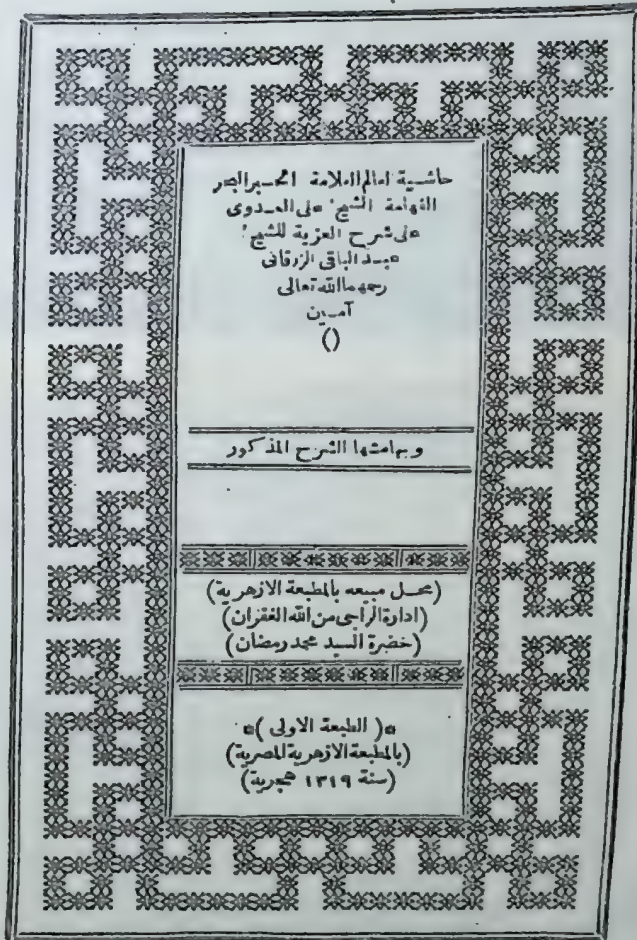 حاشية العالم العلامة الحبر البحر
الفهامة الشيخ على العدوى
على شرح العزية للشيخ
عبد الباقى الزرقانى
رحمهما الله تعالى
آمين
()
وبهامشها الشرح المذكور
(محل مبيعه بالمطبعة الازهرية)
(ادارة الراجى من الله الغفران)
(حضرة السيد محمد رمضان)
*( الطبعة الاولى )*
(بالمطبعة الازهرية المصرية)
(سنة ١٣١٩ هجرية)